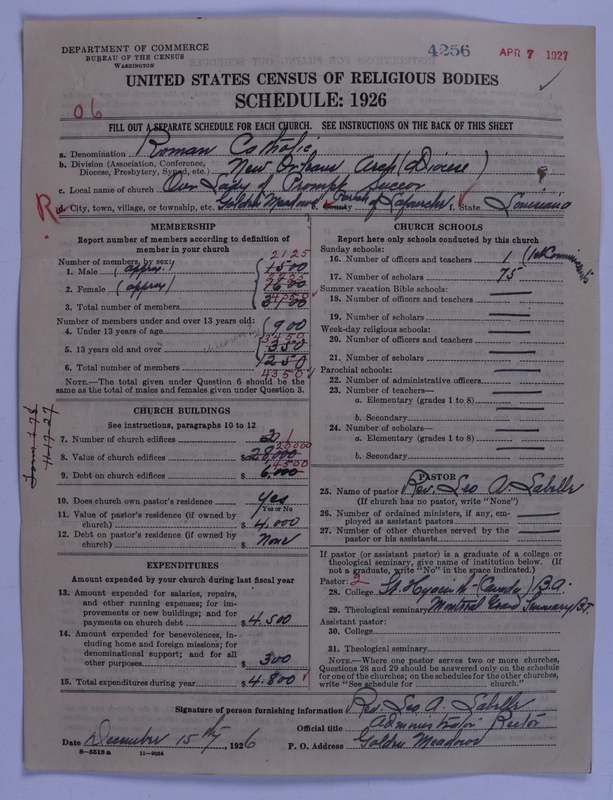 DEPARTMENT OF COMMERCE
BUREAU OF THE CENSUS
WASHINGTON
4256
APR 7 1927
UNITED STATES CENSUS OF RELIGIOUS BODIES
SCHEDULE: 1926
06
FILL OUT A SEPARATE SCHEDULE FOR EACH CHURCH. SEE INSTRUCTIONS ON THE BACK OF THIS SHEET
a. Denomination Roman Catholic
b. Division (Association, Conference, Diocese, Presbytery, Synod, etc.) New Orleans Arch (Diocese)
c. Local name of church Our Lady of Prompt Succor
R
d. City, town, village, or township, etc. Golden Meadow County Parish of Lafourche f. State Louisiana
MEMBERSHIP
Report number of members according to definition of member in your church
Number of members, by sex:
2125
1. Male (approx.) 1500
2. Female (approx) 1600
3. Total number of members 3100
Number of members under and over 13 years old:
4. Under 13 years of age 900
5. 13 years old and over 350
6. Total number of members 1250
4350
NOTE.—The total given under Question 6 should be the same as the total of males and females given under Question 3.
CHURCH BUILDINGS
See instructions, paragraphs 10 to 12
7. Number of church edifices 2 1
8. Value of church edifices $ 20000
9. Debt on church edifices $ 6,000 4500
10. Does church own pastor's residence Yes
Yes or No
11. Value of pastor's residence (if owned by church) $ 4,000
12. Debt on pastor's residence (if owned by church) $ None
EXPENDITURES
Amount expended by your church during last fiscal year
13. Amount expended for salaries, repairs, and other running expenses; for improvements or new buildings; and for payments on church debt $ 4.500
14. Amount expended for benevolences, including home and foreign missions; for denominational support; and for all other purposes $ 300
15. Total expenditures during year $ 4.800
CHURCH SCHOOLS
Report here only schools conducted by this church
Sunday schools:
16. Number of officers and teachers 1
17. Number of scholars 75
Summer vacation Bible schools:
18. Number of officers and teachers
19. Number of scholars
Week-day religious schools:
20. Number of officers and teachers
21. Number of scholars
Parochial schools:
22. Number of administrative officers
23. Number of teachers—
a. Elementary (grades 1 to 8)
b. Secondary
24. Number of scholars—
a. Elementary (grades 1 to 8)
b. Secondary
PASTOR
25. Name of pastor Rev. Leo A. Labelle
(If church has no pastor, write "None")
26. Number of ordained ministers, if any, employed as assistant pastors
27. Number of other churches served by the pastor or his assistants
If pastor (or assistant pastor) is a graduate of a college or theological seminary, give name of institution below. (If not a graduate, write "No" in the space indicated.)
Pastor: 2
28. College St. Hyacinth (Canada) B.A.
29. Theological seminary Montreal Grand Seminary B.T
Assistant pastor:
30. College
31. Theological seminary
NOTE.—Where one pastor serves two or more churches, Questions 28 and 29 should be answered only on the schedule for one of the churches; on the schedules for the other churches, write "See schedule for church."
Signature of person furnishing information Rev. Leo A. Labelle
Official title Administrator Rector
Date December 15th, 1926 P. O. Address Golden Meadow
8-5518a 11-9084